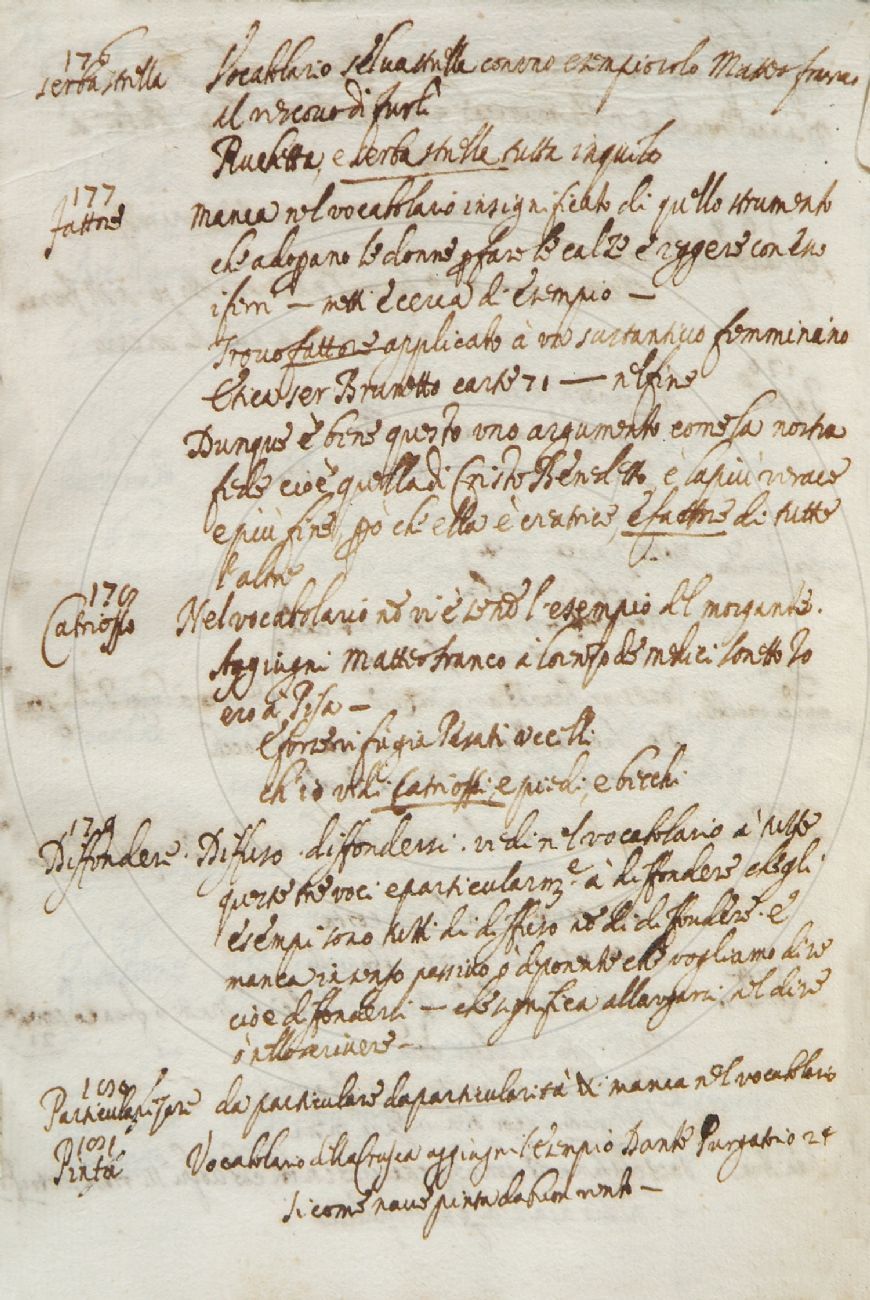 176
serbastrella Vocabolario selvastrella con uno esempio solo Matteo franco
al vescovo di furlì
Ruchetta, e serbastrelle tutta in quilo
177
fattore manca nel vocabolario in significato di quello strumento
che adoprano le donne per fare le calze e reggere con esso
i ferri — metti e cerca di esempio —
Trovo fattore applicato à un sustantivo femminino
Etica ser Brunetto carte 71 — nel fine
Dunque è bene questo uno argumento come la nostra
fede cioè quella di Cristo Benedetto, è la più verace
e più fine, però che ella è creatrice, e fattore di tutte
l'altre
178
Catriosso Nel vocabolario no vi è se no l'esempio del morgante.
Aggiugni Matteo franco a lorenzo de medici sonetto Io
ero a Pisa —
E forse vi fugia Pasati uccelli
ch'io vidi Catriossi, e piedi, e becchi
179
Diffondere. Diffuso. diffondersi. vedi nel vocabolario à tutte
queste tre voci e particularmte à diffondere che gli
esempi sono tutti di diffuso no di diffondere. e
manca in senso passivo ò deponente che vogliamo dire
cioè diffondersi — che significa allargarsi nel dire
ò nello scrivere —
180
Particularizzare da particulare da particularità &. manca nel vocabolario
181
Pinta Vocabolario della Crusca aggiugni l'esempio Dante Purgatorio 24
si come nave pinta da buon vento —